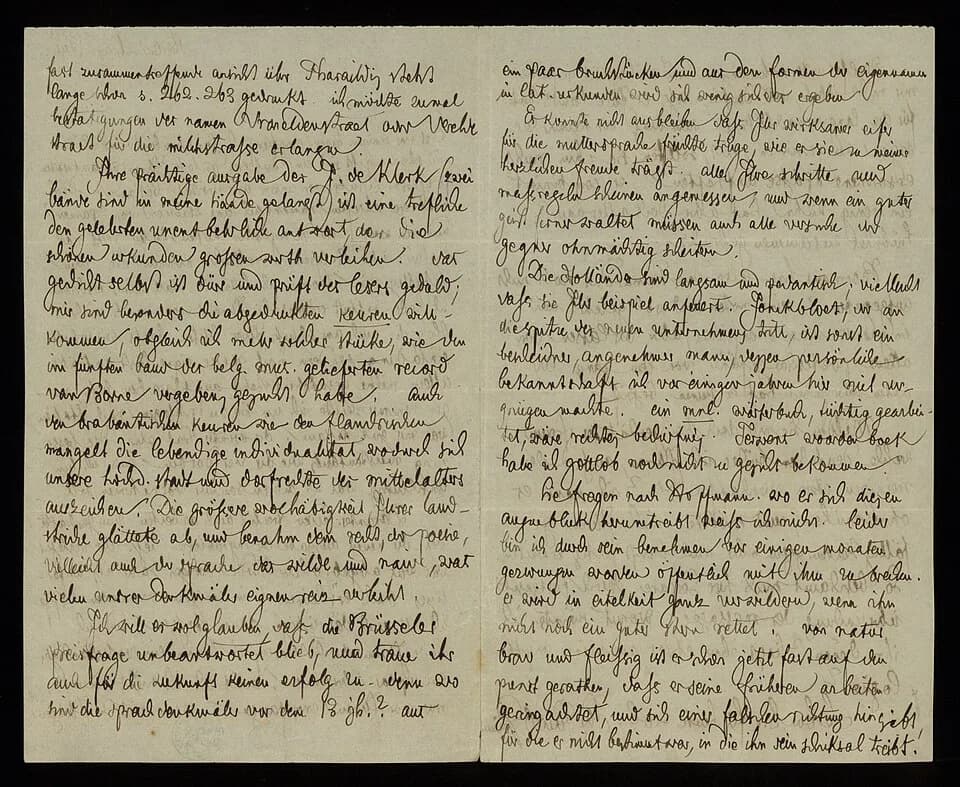 fast zusammentreffende ansicht über Pharaildis steht
lange schon s. 262. 263 gedruckt. ich möchte einmal
bestätigungen der namen Vroneldenstraet oder Verelde
straet für die milchstrasse erlangen
Ihre prächtige ausgabe des J. de Klerk (zwei
bände sind in meine hände gelangt) ist eine trefliche
den gelehrten unentbehrliche antwort, der die
schönen urkunden grossen werth verleihen. das
gedicht selbst ist dürr und prüft des lesers geduld;
mir sind besonders die abgedruckten keuren will-
kommen, obgleich ich mehr solcher stücke, wie den
im fünften band der belg. mus. gelieferten record
van Borne vergebens gesucht habe. auch
den brabantischen keuren wie den flandrischen
mangelt die lebendige individualität, wodurch sich
unsere hochd. stadt und dorfrechte des mittelalters
auszeichnen. Die größere wolhäbigkeit Ihrer land-
striche glättete ab, und benahm dem recht, der poesie,
vielleicht auch der sprache das wilde und naive, was
vielen unsrer denkmäler eignen reiz verleiht.
Ich will es wol glauben, daß die Brüsseler
preisfrage unbeantwortet blieb, und traue ihr
auch für die zukunft keinen erfolg zu. denn wo
sind die sprachdenkmäler vor dem 13 jh.? aus
ein paar bruchstücken und aus den formen der eigennamen
in lat. urkunden wird sich wenig sicheres ergeben
Es konnte nicht ausbleiben daß Ihr wirksamer eifer
für die muttersprache früchte trüge, wie er sie zu meiner
herzlichen freude trägt. alle Ihre schritte und
maßregeln scheinen angemessen, und wenn ein guter
geist ferner waltet müssen auch alle versuche der
gegner ohnmächtig scheitern.
Die Holländer sind langsam und pedantisch; vielleicht
daß sie Ihr beispiel anfeuert. Jonckbloet, der an
die spitze des neuen unternehmens tritt, ist sonst ein
bescheidner, angenehmer mann, deßen persönliche
bekanntschaft ich vor einigen jahren hier mit ver-
gnügen machte. ein mnl. wörterbuch, tüchtig gearbei-
tet, wäre rechtes bedürfnis. Terwens woordenboek
habe ich gottlob noch nicht zu gesicht bekommen
Sie fragen nach Hoffmann. wo er sich diesen
augenblick herumtreibt weiß ich nicht. leider
bin ich durch sein benehmen vor einigen monaten
gezwungen worden öffentlich mit ihm zu brechen.
er wird in eitelkeit ganz verwildern, wenn ihn
nicht noch ein guter stern rettet. von natur
brav und fleissig ist er schon jetzt fast auf den
punct gerathen, daß er seine früheren arbeiten
geringachtet, und sich einer falschen richtung hingiebt,
für die er nicht bestimmt war, in die ihn sein schicksal treibt.